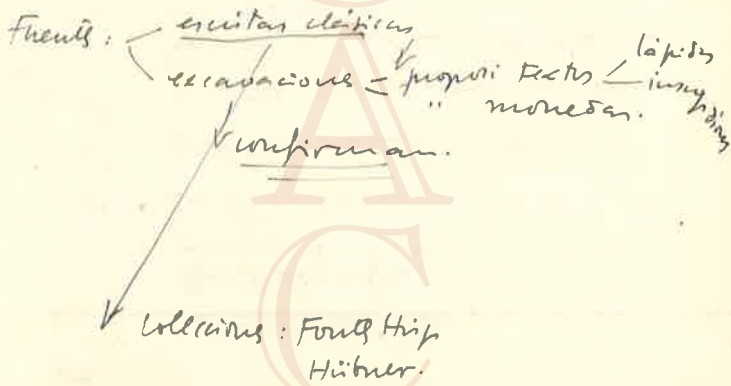 Fuentes: escritas clásicas
excavaciones = propori textos lápidas
inscripciones
" monedas.
confirman.
Colecciones: Fontes Hisp
Hübner.
A
C